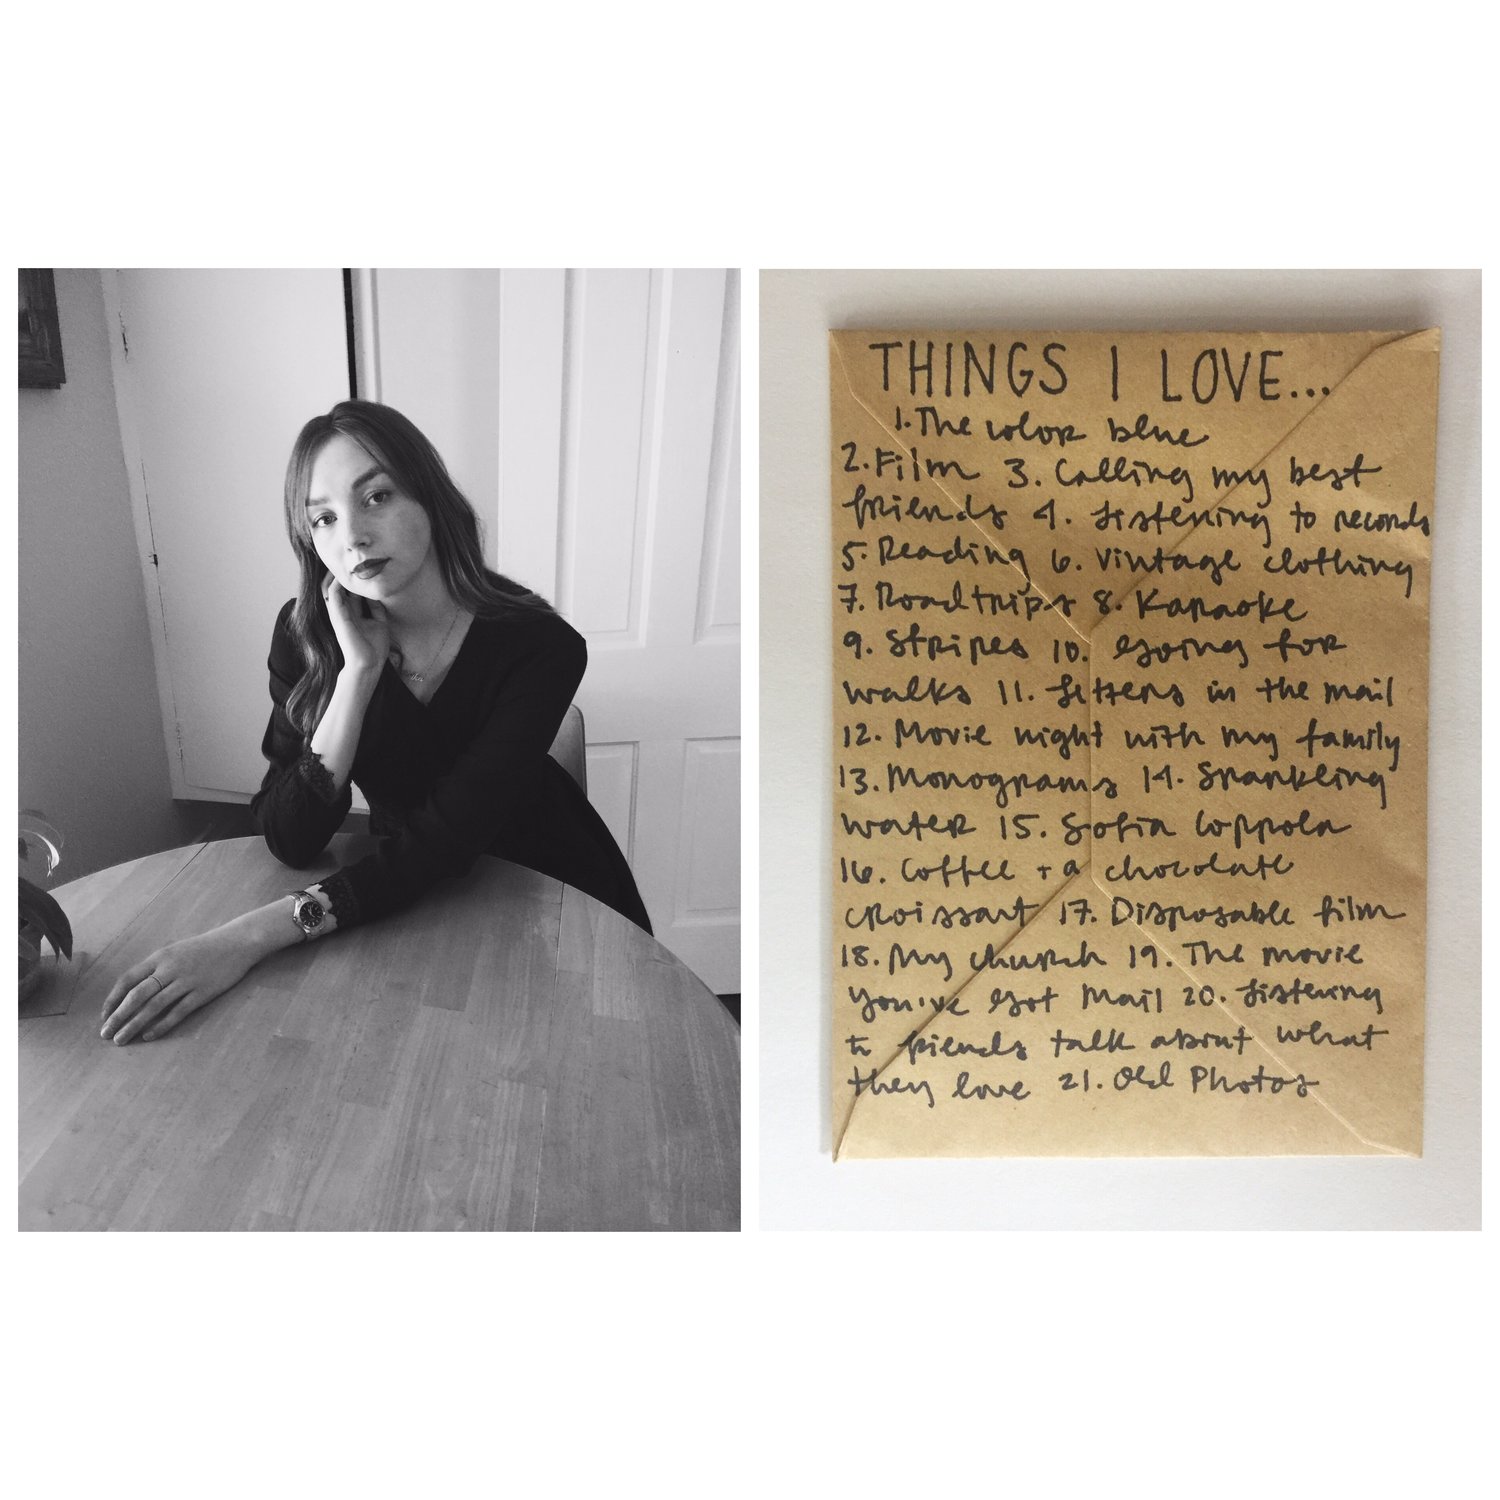 THINGS I LOVE...
1. The color blue
2. Film 3. Calling my best
friends 4. Listening to records
5. Reading 6. Vintage clothing
7. Roadtrips 8. Karaoke
9. Stripes 10. Going for
walks 11. Letters in the mail
12. Movie night with my family
13. Monograms 14. Sparkling
water 15. Sofia Coppola
16. Coffee + a chocolate
croissant 17. Disposable film
18. My church 19. The movie
You've Got Mail 20. Listening
to friends talk about what
they love 21. Old Photos